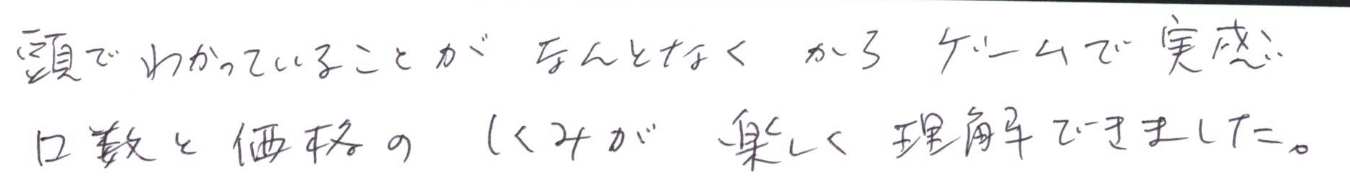 頭でわかっていることが なんとなく から ゲームで 実感
口数と価格の しくみが 楽しく 理解できました。